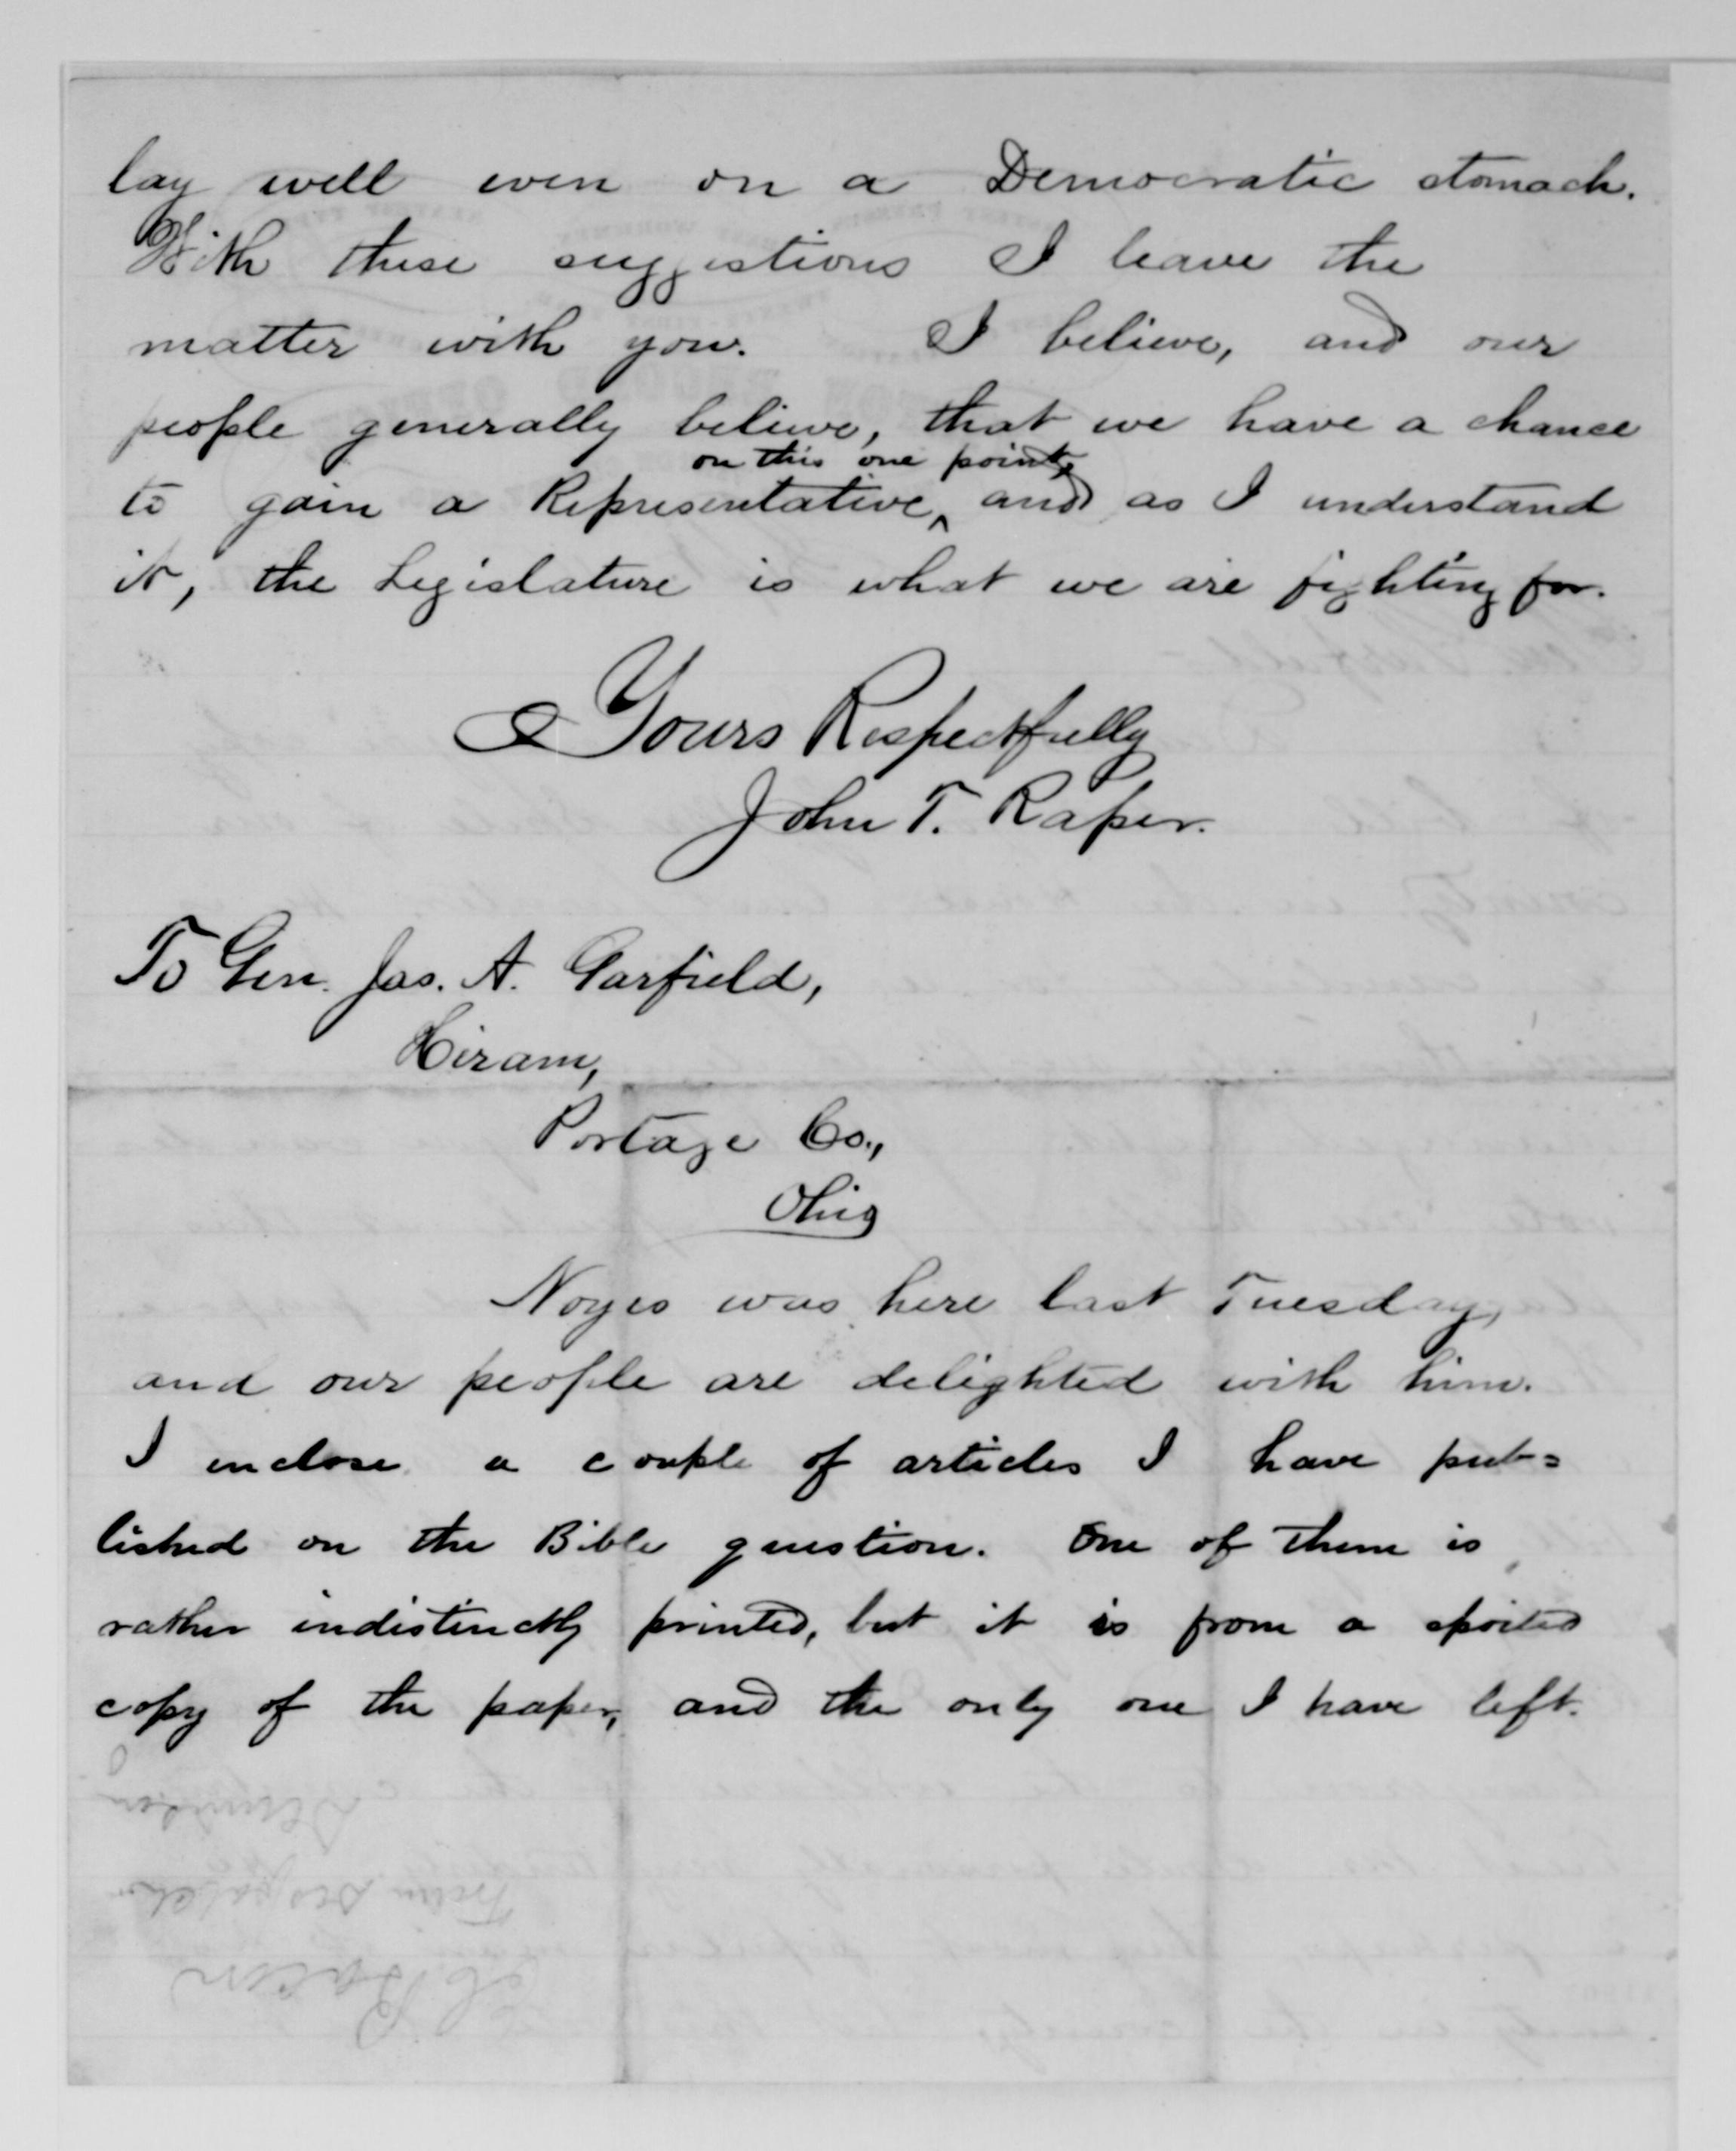 lay well even on a Democratic stomach.
With these suggestions I leave the
matter with you. I believe, and our
people generally believe, that we have a chance
on this one point,
to gain a Representative ‸ and as I understand
it, the Legislature is what we are fighting for.
Yours Respectfully
John T. Raper.
To Gen. Jas. A. Garfield,
Hiram,
Portage Co.,
Ohio
Noyes was here last Tuesday,
and our people are delighted with him.
I enclose a couple of articles I have pub=
lished on the Bible question. One of them is
rather indistinctly printed, but it is from a spoiled
copy of the paper, and the only one I have left.